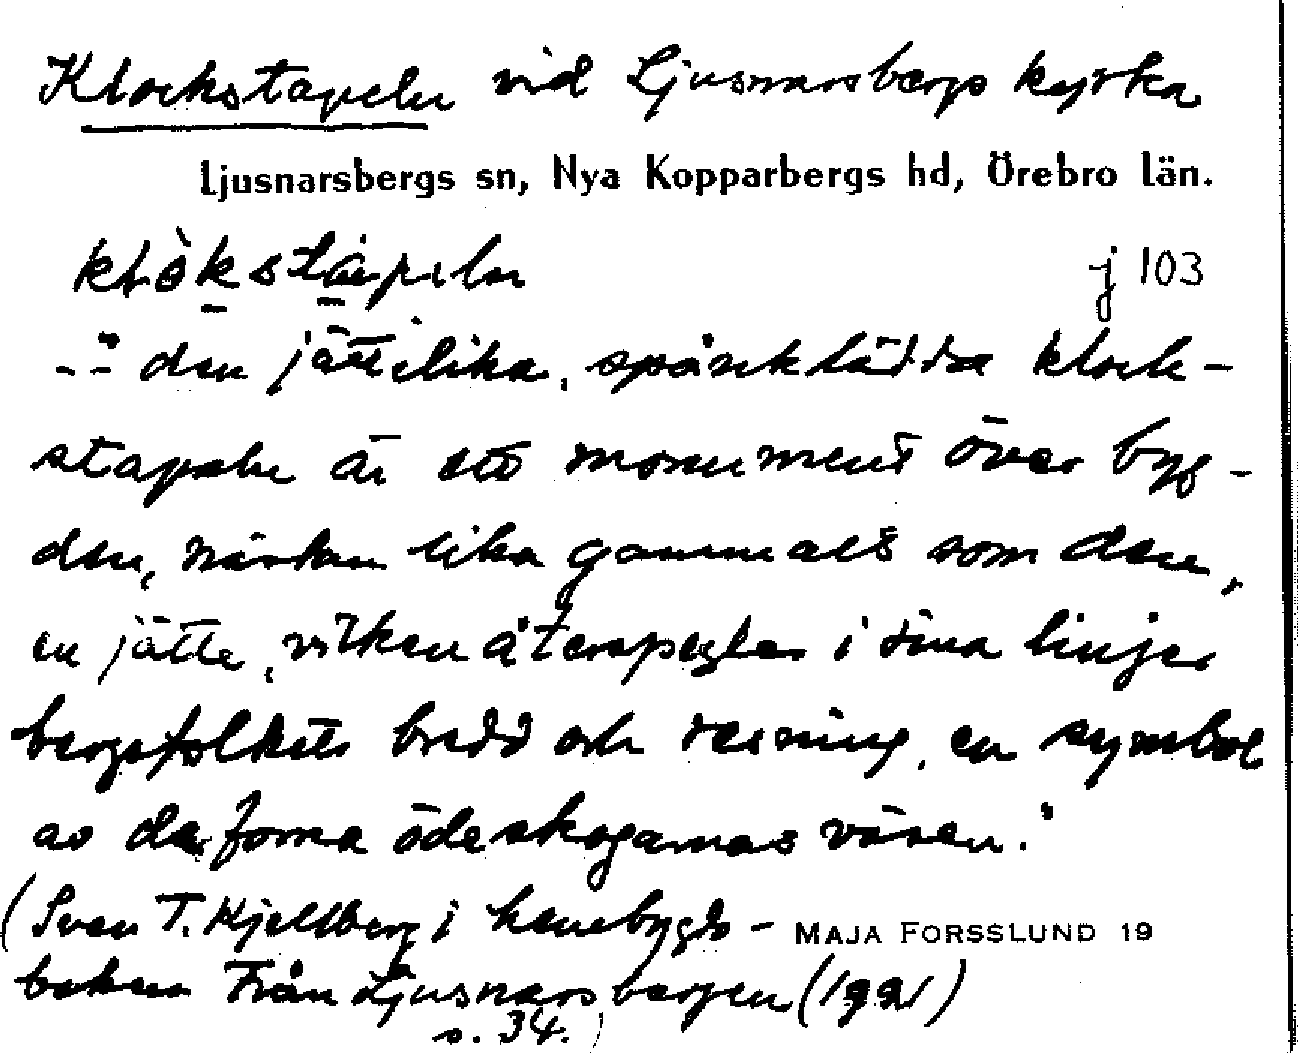 Klockstapeln vid Ljusnarsbergs kyrka
Ljusnarsbergs sn, Nya Kopparbergs hd, Örebro län.
klòkstapeln j 103
-" den jättelika, spånklädda klock-
stapeln är ett monument över byg-
den, nästan lika gammalt som den,
en jätte, vilken återspeglar i sina linjer
bergsfolkets bredd och resning, en symbol
av de forna ödeskogarnas väsen."
(Sven T. Kjellberg i hembygds-
MAJA FORSSLUND 19
boken Från Ljusnarsbergen (1921)
s. 34.)